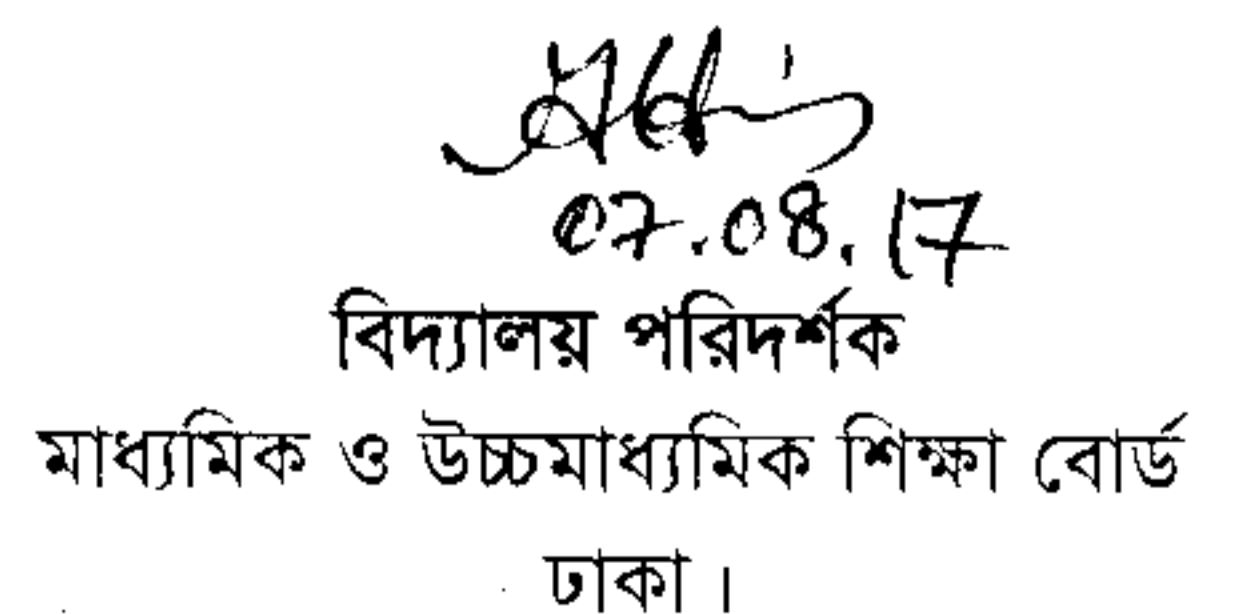 07.08.17
বিদ্যালয় পরিদর্শক
মাধ্যমিক ও উচ্চমাধ্যমিক শিক্ষা বোর্ড
ঢাকা।